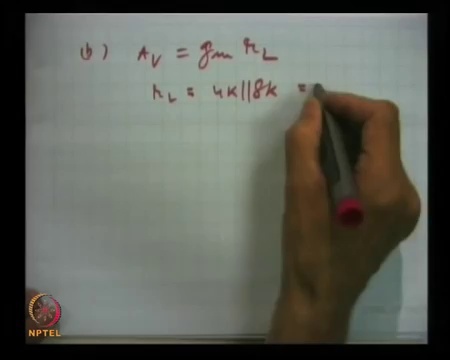 (b) Av = gm rL
rL = 4K||8K =
NPTEL